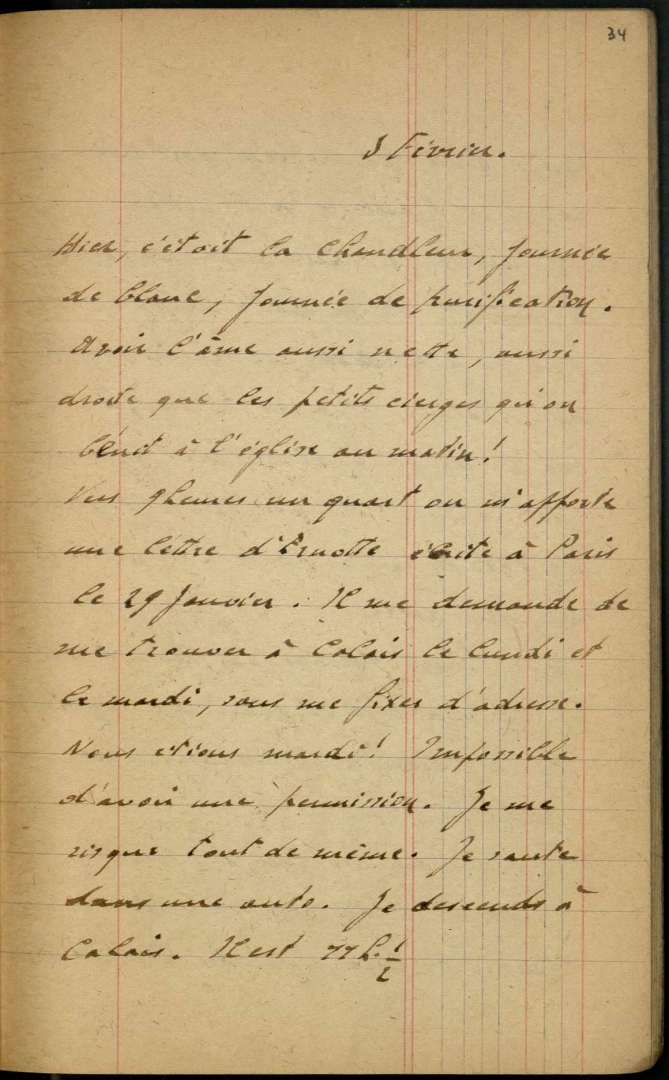 34
3 Février.
Hier, c'était la Chandleur, journée
de blanc, journée de purification.
Avoir l'âme aussi nette, aussi
droite que les petits cierges qu'on
bénit à l'église au matin!
Vers 9 heures un quart on m'apporte
une lettre d' écrite à Paris
le 29 Janvier. Il me demande de
me trouver à Calais le lundi et
le mardi, sans me fixer d'adresse.
Nous étions mardi! Impossible
d'avoir une permission. Je me
risque tout de même. Je saute
dans une auto. Je descends à
Calais. Il est 11 h. 1/2